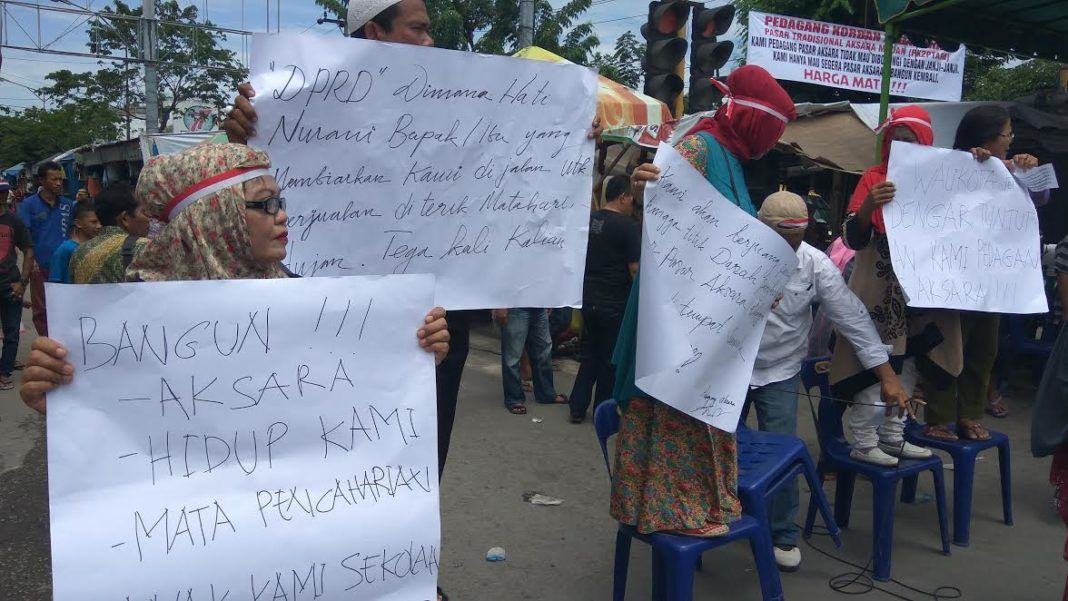 PEDAGANG KORBAN
PASAR TRADISIONAL AKSARA MEDAN
KAMI PEDAGANG PASAR AKSARA TIDAK MAU DIBOHONGI DENGAN JANJI-JANJI.
KAMI HANYA MAU SEGERA PASAR AKSARA DIBANGUN KEMBALI.
HARGA MATI!!!
"DPRD" Dimana Hati
Nurani Bapak/Ibu yang
Membiarkan Kami di jalan Utk
berjualan di terik Matahari
Hujan. Tega kali Kalian
BANGUN !!!
-AKSARA
-HIDUP KAMI
-MATA PENCAHARIAN
KAMI SEKOLAH
Kami akan berjuang
hingga titik Darah
- Pasar Aksara
tempat
WALIKOTA
DENGAR TUNTUT
AN KAMI PEDAGANG
AKSARA !!!